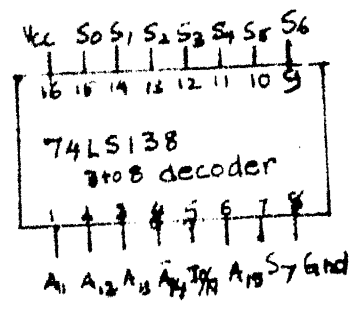 Vcc S0 S1 S2 S3 S4 S5 S6
16 15 14 13 12 11 10 9
74LS138
3 to 8 decoder
1 2 3 4 5 6 7 8
A11 A12 A13 A14 IO/M A15 S7 Gnd